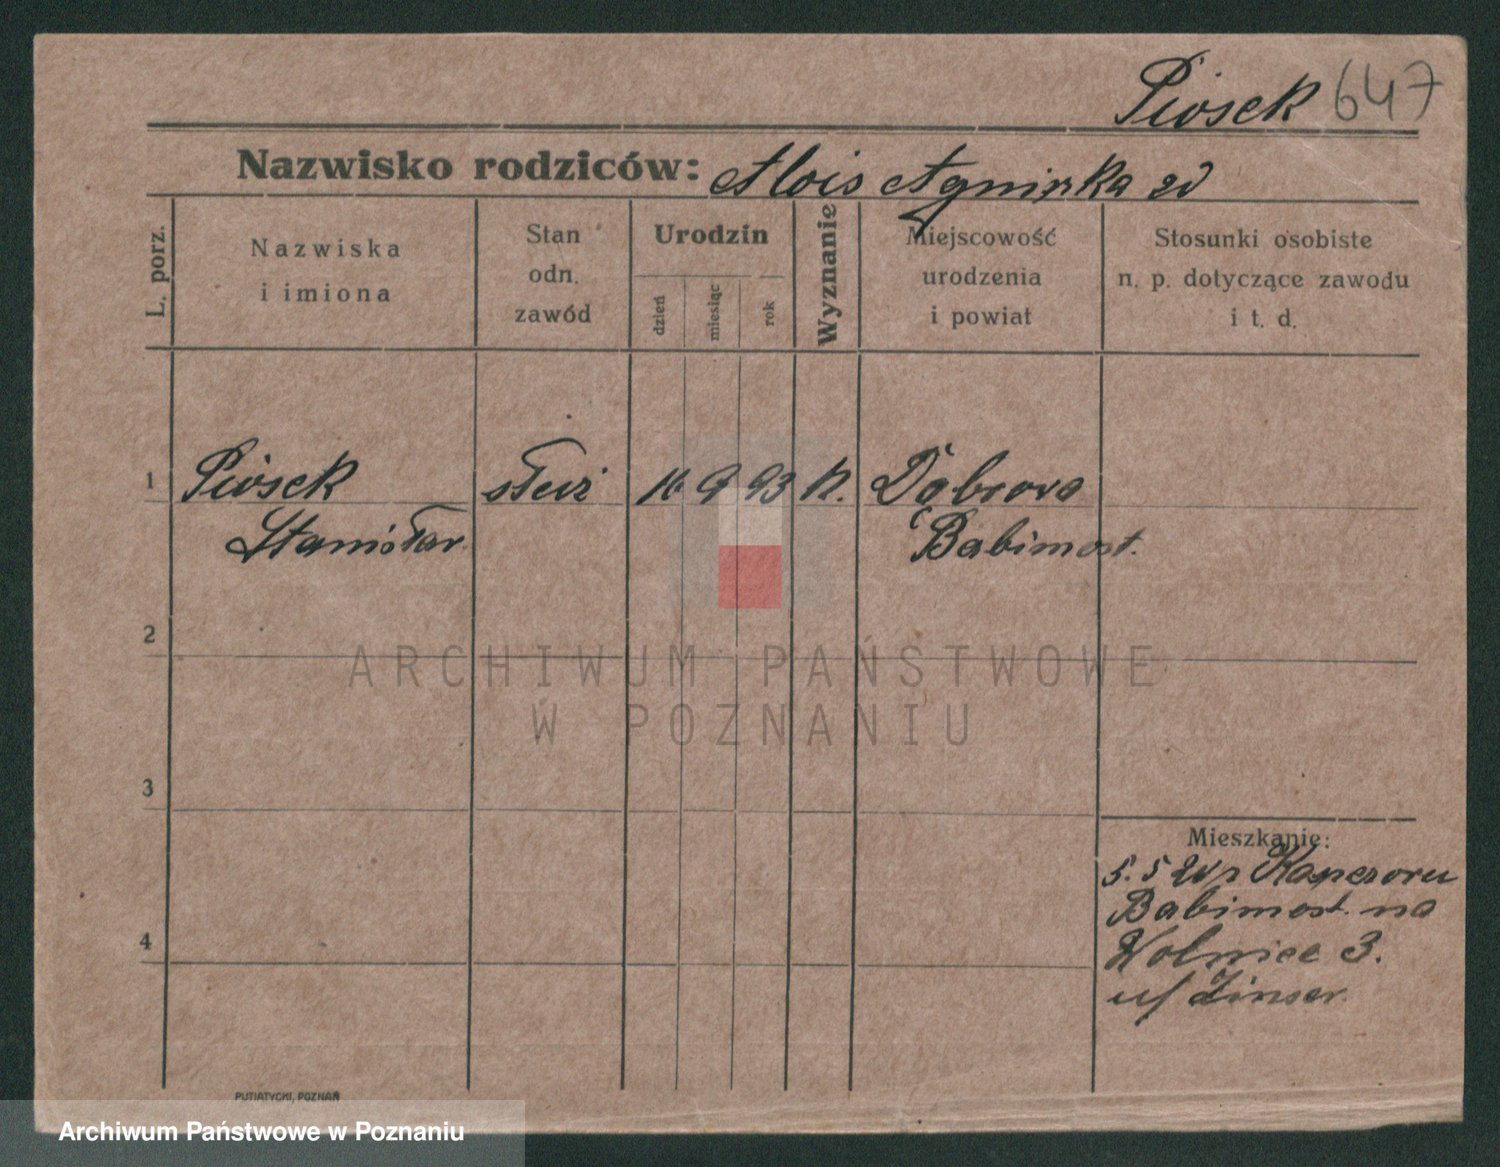 Piosek 647
Nazwisko rodziców: Alois Agniszka
L. porz.
Nazwiska
i imiona
Stan
odn.
zawód
Urodzin
dzień
miesiąc
rok
Wyznanie
Miejscowość
urodzenia
i powiat
Stosunki osobiste
n. p. dotyczące zawodu
i t. d.
1 Piosek służ 16 9 93 k. Dąbrova
Stanisłav Babimost.
2
3
4
Mieszkanie:
5. 5 Kopczoru
Babimost. na
Wolnice 3.
u/ Zinser.
PUTIATYCKI, POZNAŃ
ARCHIWUM PAŃSTWOWE
W POZNANIU
Archiwum Państwowe w Poznaniu